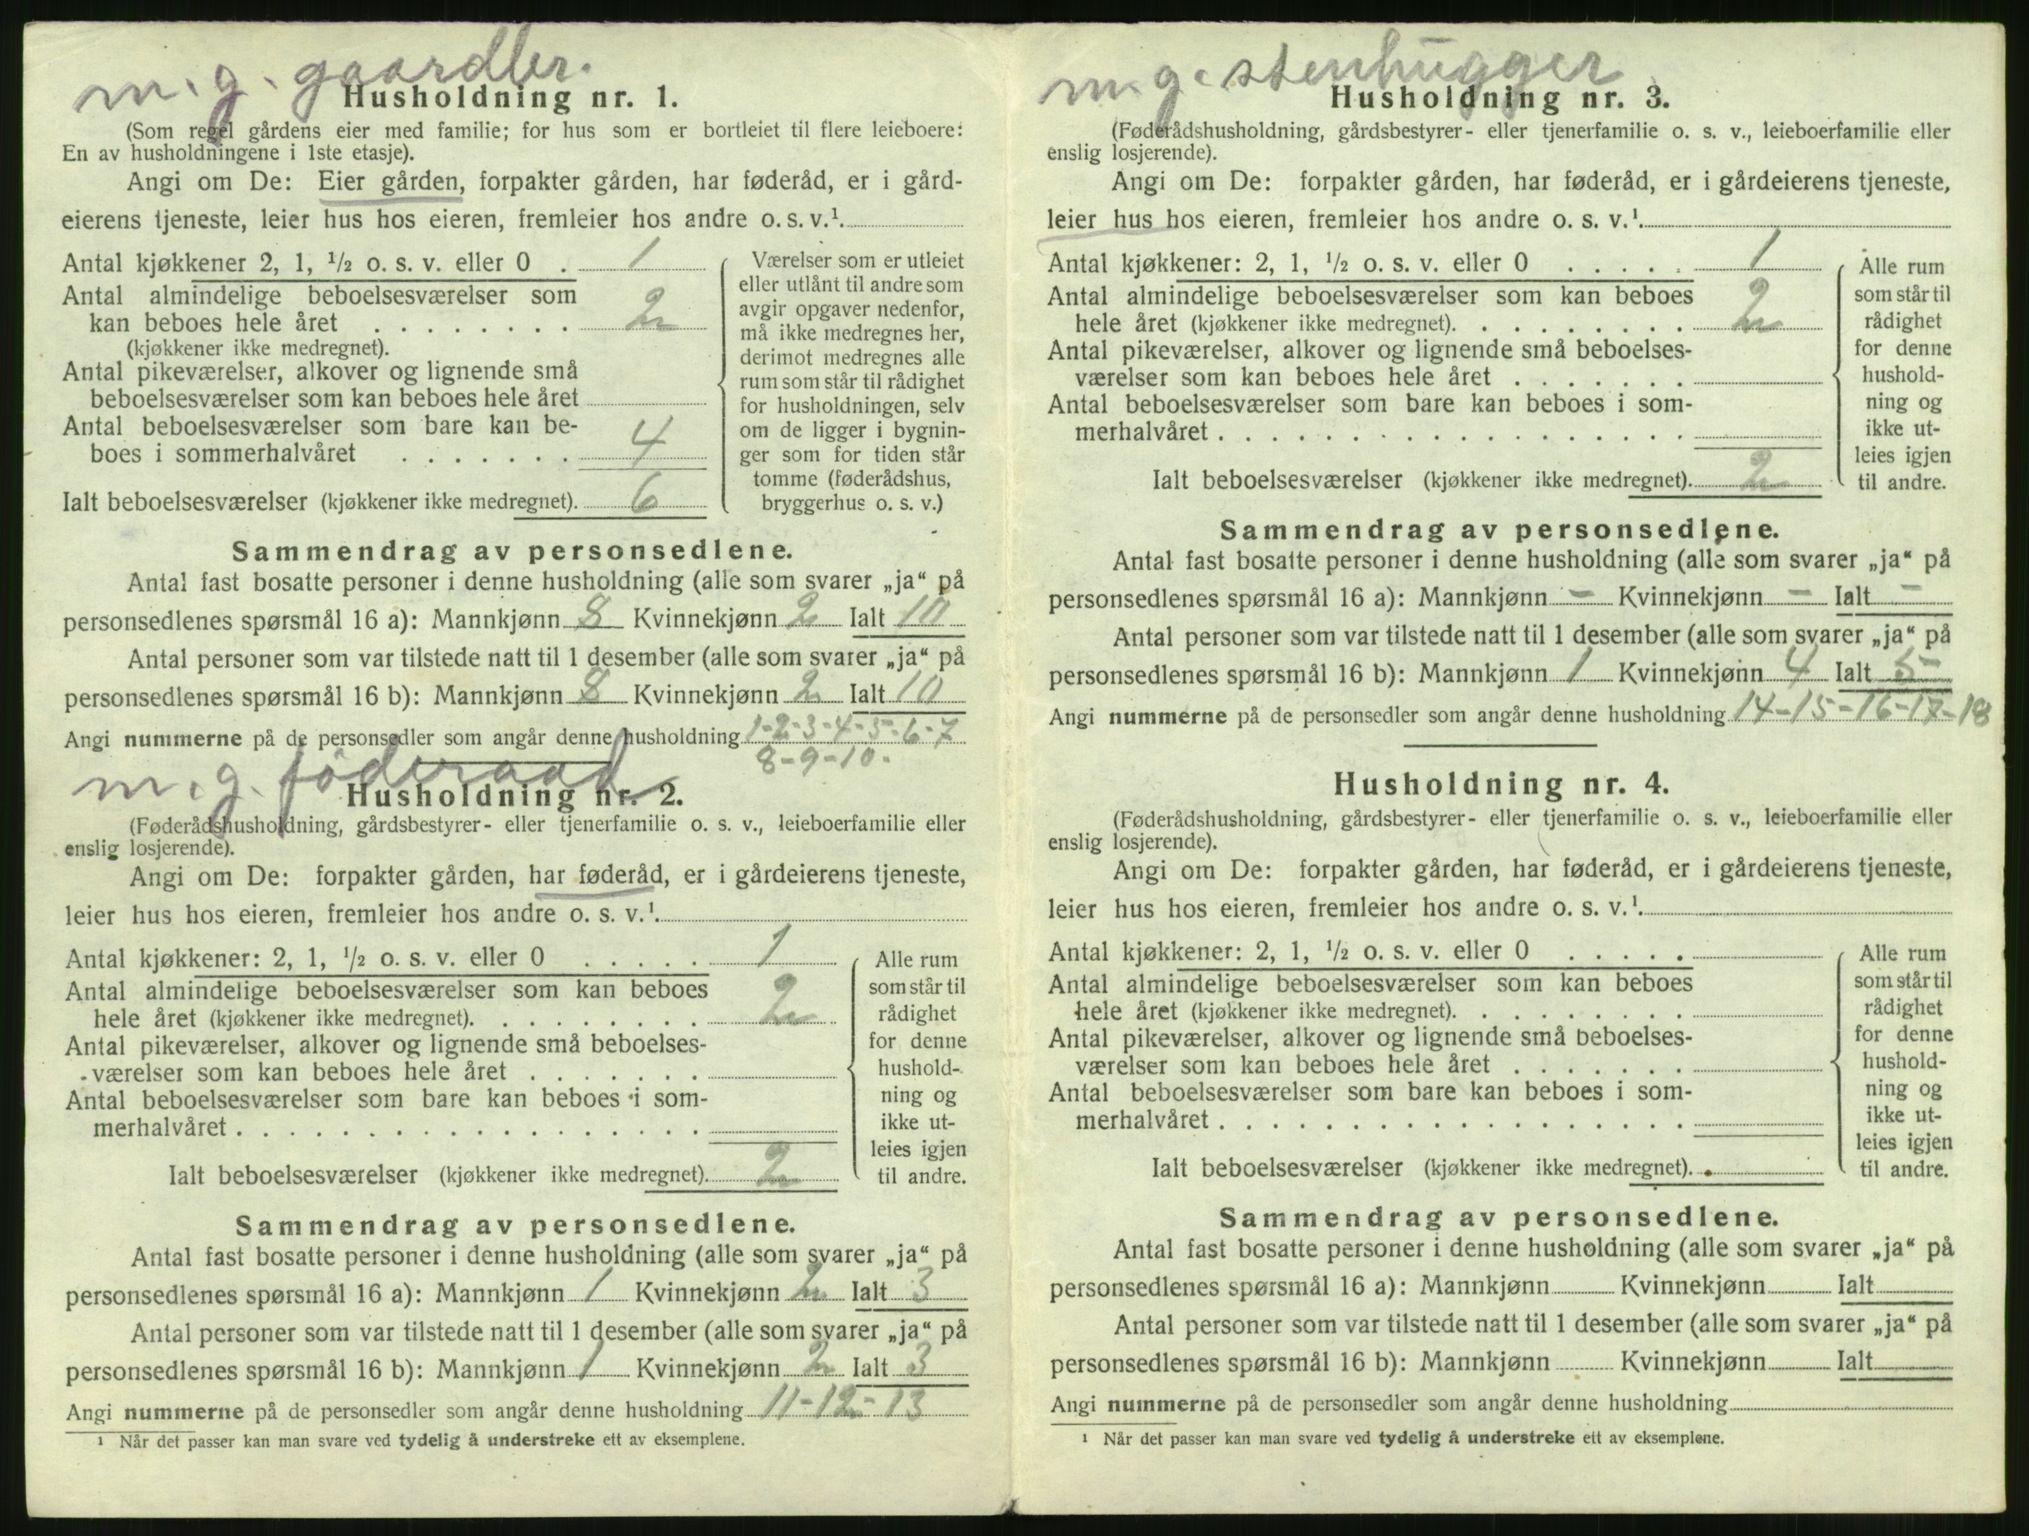 m. g. gaardbr.
Husholdning nr. 1.
(Som regel gårdens eier med familie; for hus som er bortleiet til flere leieboere:
En av husholdningene i 1ste etasje).
Angi om De: Eier gården, forpakter gården, har føderåd, er i gård-
eierens tjeneste, leier hus hos eieren, fremleier hos andre o. s. v.¹
Antal kjøkkener 2, 1, ½ o. s. v. eller 0 . 1
Antal almindelige beboelsesværelser som
kan beboes hele året . . . . . . . . 2
(kjøkkener ikke medregnet).
Antal pikeværelser, alkover og lignende små
beboelsesværelser som kan beboes hele året
Antal beboelsesværelser som bare kan be-
boes i sommerhalvåret . . . . . . . 4
Ialt beboelsesværelser (kjøkkener ikke medregnet). 6
Værelser som er utleiet
eller utlånt til andre som
avgir opgaver nedenfor,
må ikke medregnes her,
derimot medregnes alle
rum som står til rådighet
for husholdningen, selv
om de ligger i bygnin-
ger som for tiden står
tomme (føderådshus,
bryggerhus o. s. v.)
Sammendrag av personsedlene.
Antal fast bosatte personer i denne husholdning (alle som svarer „ja“ på
personsedlenes spørsmål 16 a): Mannkjønn 8 Kvinnekjønn 2 Ialt 10
Antal personer som var tilstede natt til 1 desember (alle som svarer „ja“ på
personsedlenes spørsmål 16 b): Mannkjønn 8 Kvinnekjønn 2 Ialt 10
Angi nummerne på de personsedler som angår denne husholdning 1-2-3-4-5-6-7
8-9-10-
m. g. føderaad
Husholdning nr. 2.
(Føderådshusholdning, gårdsbestyrer- eller tjenerfamilie o. s. v., leieboerfamilie eller
enslig losjerende).
Angi om De: forpakter gården, har føderåd, er i gårdeierens tjeneste,
leier hus hos eieren, fremleier hos andre o. s. v.¹
Antal kjøkkener: 2, 1, ½ o. s. v. eller 0 . . . . . 1
Antal almindelige beboelsesværelser som kan beboes
hele året (kjøkkener ikke medregnet). . . . . . . . . 2
Antal pikeværelser, alkover og lignende små beboelses-
værelser som kan beboes hele året . . . . . . .
Antal beboelsesværelser som bare kan beboes i som-
merhalvåret . . . . . . . . . . . . . . . . . .
Ialt beboelsesværelser (kjøkkener ikke medregnet). 2
Alle rum
som står til
rådighet
for denne
hushold-
ning og
ikke ut-
leies igjen
til andre.
Sammendrag av personsedlene.
Antal fast bosatte personer i denne husholdning (alle som svarer „ja“ på
personsedlenes spørsmål 16 a): Mannkjønn 1 Kvinnekjønn 2 Ialt 3
Antal personer som var tilstede natt til 1 desember (alle som svarer „ja“ på
personsedlenes spørsmål 16 b): Mannkjønn 1 Kvinnekjønn 2 Ialt 3
Angi nummerne på de personsedler som angår denne husholdning 11-12-13
¹ Når det passer kan man svare ved tydelig å understreke ett av eksemplene.
m. g. stenhugger
Husholdning nr. 3.
(Føderådshusholdning, gårdsbestyrer- eller tjenerfamilie o. s. v., leieboerfamilie eller
enslig losjerende).
Angi om De: forpakter gården, har føderåd, er i gårdeierens tjeneste,
leier hus hos eieren, fremleier hos andre o. s. v.¹
Antal kjøkkener: 2, 1, ½ o. s. v. eller 0 . . . . . 1
Antal almindelige beboelsesværelser som kan beboes
hele året (kjøkkener ikke medregnet). . . . . . . . . 2
Antal pikeværelser, alkover og lignende små beboelses-
værelser som kan beboes hele året . . . . . . .
Antal beboelsesværelser som bare kan beboes i som-
merhalvåret . . . . . . . . . . . . . . . . . .
Ialt beboelsesværelser (kjøkkener ikke medregnet). 2
Alle rum
som står til
rådighet
for denne
hushold-
ning og
ikke ut-
leies igjen
til andre.
Sammendrag av personsedlene.
Antal fast bosatte personer i denne husholdning (alle som svarer „ja“ på
personsedlenes spørsmål 16 a): Mannkjønn - Kvinnekjønn - Ialt -
Antal personer som var tilstede natt til 1 desember (alle som svarer „ja“ på
personsedlenes spørsmål 16 b): Mannkjønn 1 Kvinnekjønn 4 Ialt 5
Angi nummerne på de personsedler som angår denne husholdning 14-15-16-17-18
Husholdning nr. 4.
(Føderådshusholdning, gårdsbestyrer- eller tjenerfamilie o. s. v., leieboerfamilie eller
enslig losjerende).
Angi om De: forpakter gården, har føderåd, er i gårdeierens tjeneste,
leier hus hos eieren, fremleier hos andre o. s. v.¹
Antal kjøkkener: 2, 1, ½ o. s. v. eller 0 . . . . .
Antal almindelige beboelsesværelser som kan beboes
hele året (kjøkkener ikke medregnet). . . . . . . . .
Antal pikeværelser, alkover og lignende små beboelses-
værelser som kan beboes hele året . . . . . . .
Antal beboelsesværelser som bare kan beboes i som-
merhalvåret . . . . . . . . . . . . . . . . . .
Ialt beboelsesværelser (kjøkkener ikke medregnet).
Alle rum
som står til
rådighet
for denne
hushold-
ning og
ikke ut-
leies igjen
til andre.
Sammendrag av personsedlene.
Antal fast bosatte personer i denne husholdning (alle som svarer „ja“ på
personsedlenes spørsmål 16 a): Mannkjønn Kvinnekjønn Ialt
Antal personer som var tilstede natt til 1 desember (alle som svarer „ja“ på
personsedlenes spørsmål 16 b): Mannkjønn Kvinnekjønn Ialt
Angi nummerne på de personsedler som angår denne husholdning
¹ Når det passer kan man svare ved tydelig å understreke ett av eksemplene.